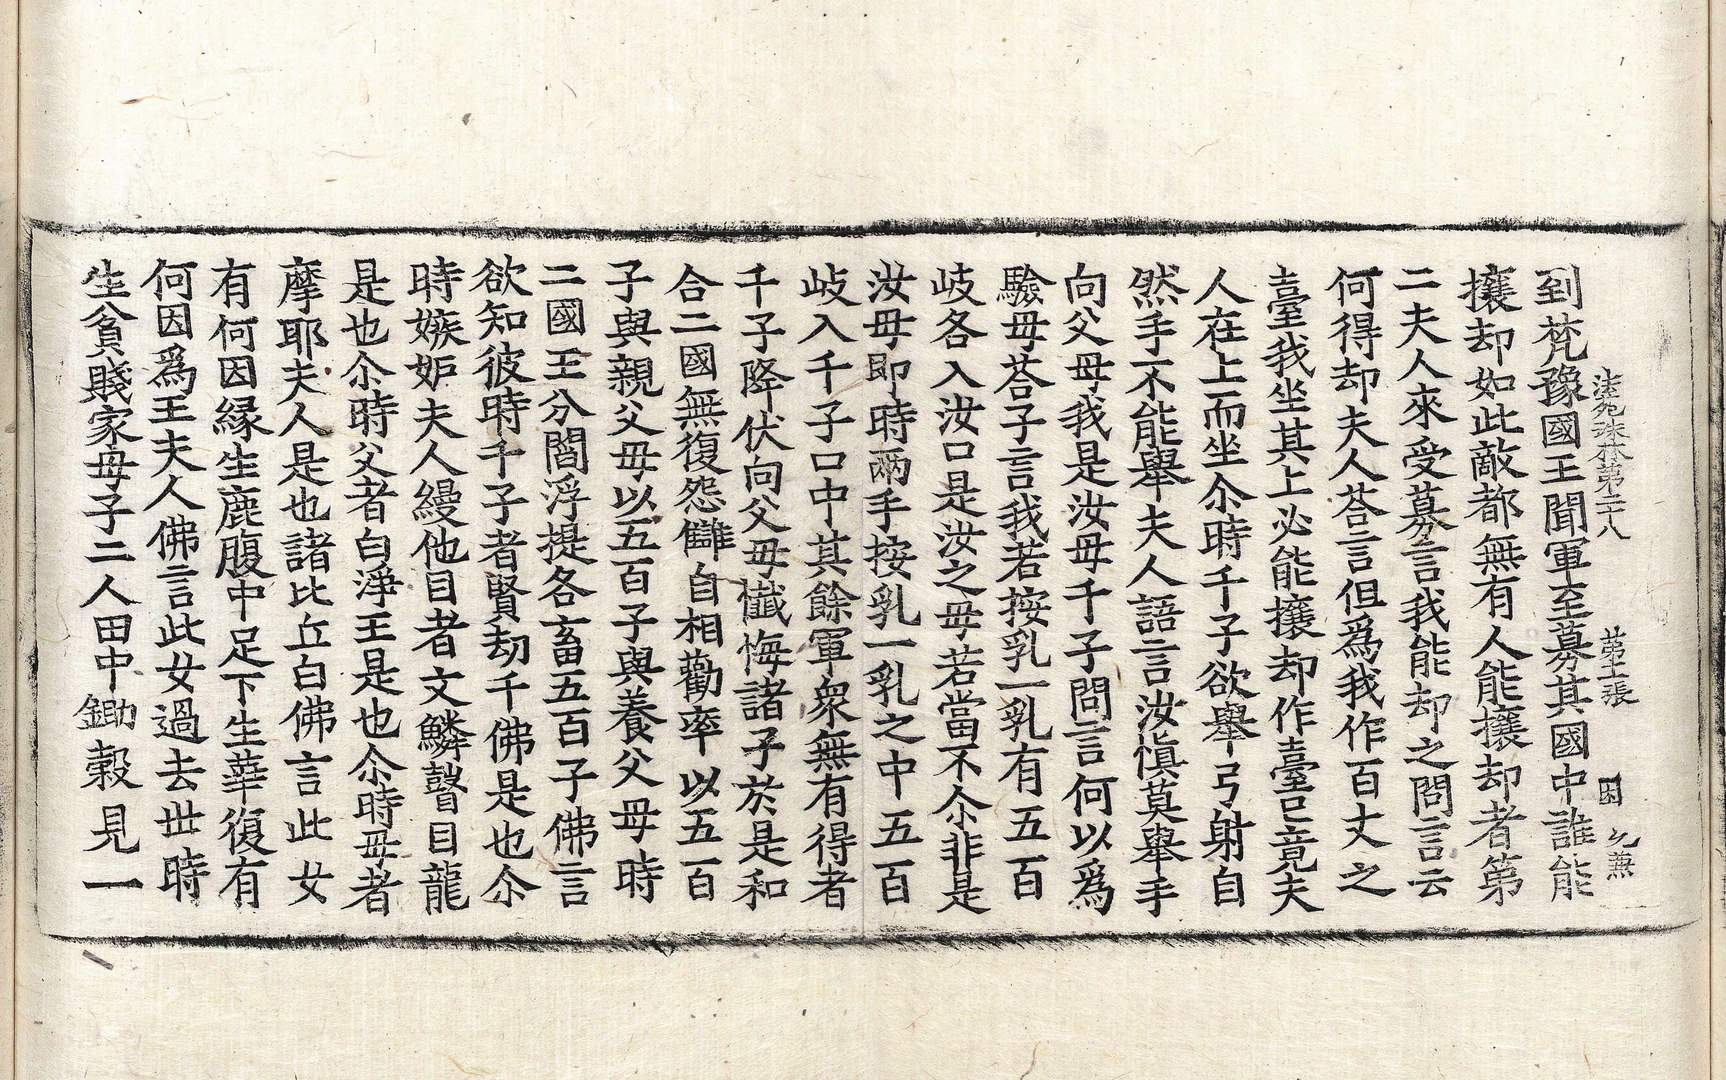 法苑珠林第二十八　第十二張　困
到梵豫國王聞軍至募其國中誰能
攘却如此敵都無有人能攘却者第
二夫人來受募言我能却之問言云
何得却夫人荅言但爲我作百丈之
臺我坐其上必能攘却作臺已竟夫
人在上而坐尒時千子欲舉弓射自
然手不能舉夫人語言汝愼莫舉手
向父母我是汝母千子問言何以爲
驗母荅子言我若按乳一乳有五百
歧各入汝口是汝之母若當不尒非是
汝母即時兩手按乳一乳之中五百
歧入千子口中其餘軍衆無有得者
千子降伏向父母懺悔諸子於是和
合二國無復怨讎自相勸率以五百
子與親父母以五百子與養父母時
二國王分閻浮提各畜五百子佛言
欲知彼時千子者賢劫千佛是也尒
時嫉妬夫人縵他目者文鱗瞽目龍
是也尒時父者白淨王是也尒時母者
摩耶夫人是也諸比丘白佛言此女
有何因緣生鹿腹中足下生華復有
何因爲王夫人佛言此女過去世時
生貧賤家母子二人田中鋤穀見一